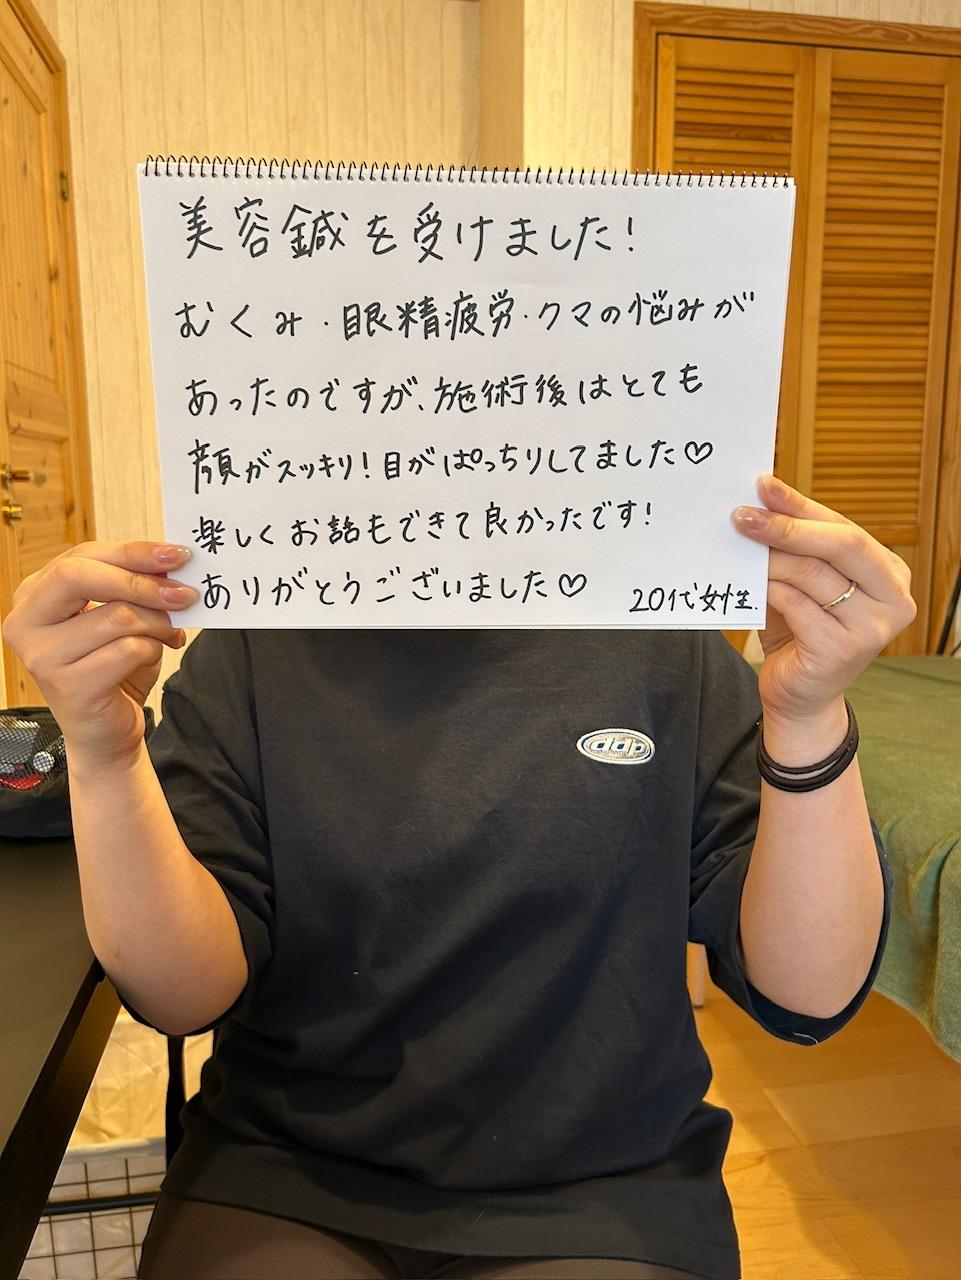 美容鍼を受けました!
むくみ・眼精疲労・クマの悩みが
あったのですが、施術後はとても
顔がスッキリ!目がぱっちりしてました♡
楽しくお話もできて良かったです!
ありがとうございました♡
20代女性.
ddp